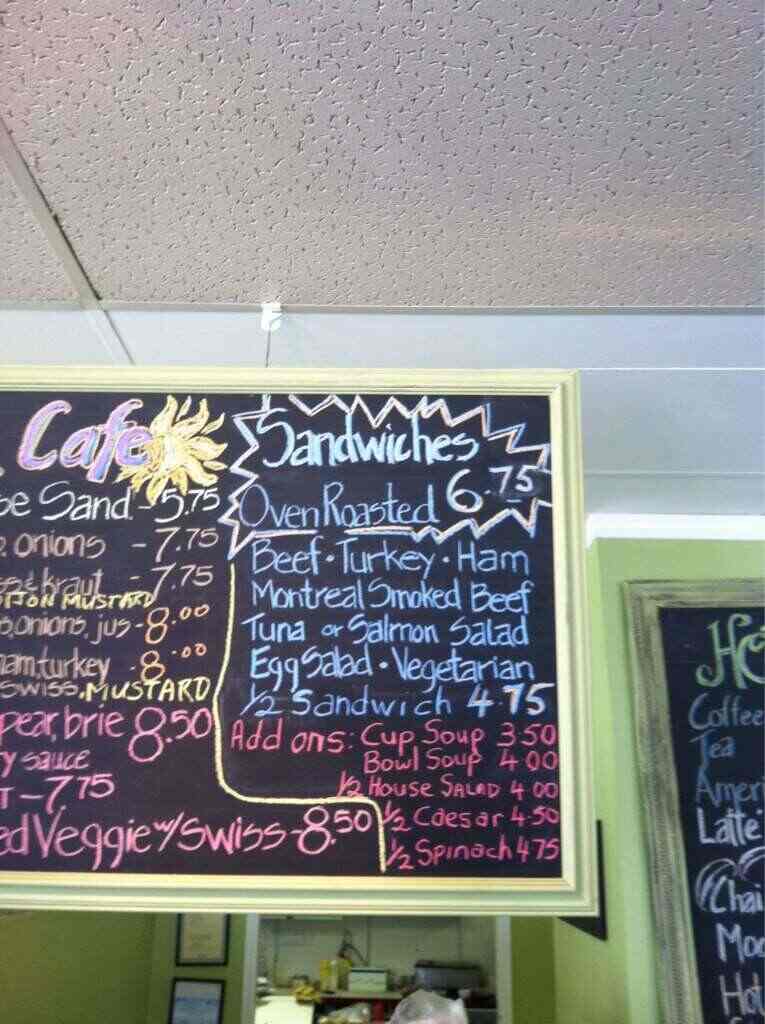 Cafe
Sand - 5.75
onions - 7.75
& kraut - 7.75
MUSTARD
onions, jus - 8.00
turkey - 8.00
SWISS, MUSTARD
pear, brie 8.50
sauce
- 7.75
Veggie w/ Swiss - 8.50
Sandwiches
6.75
Oven Roasted
Beef • Turkey • Ham
Montreal Smoked Beef
Tuna or Salmon Salad
Egg Salad • Vegetarian
1/2 Sandwich 4.75
Add ons: Cup Soup 3.50
Bowl Soup 4.00
1/2 House Salad 4.00
1/2 Caesar 4.50
1/2 Spinach 4.75
Coffee
Tea
Latte
Chai
Hot